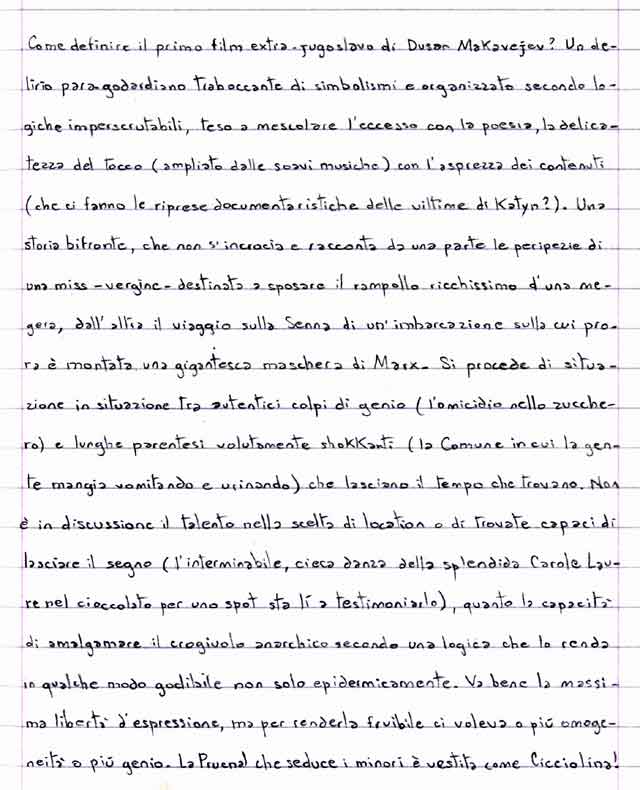 Come definire il primo film extra-jugoslavo di Dusan Makavejev? Un de-
lirio para-godardiano traboccante di simbolismi e organizzato secondo lo-
giche imperscrutabili, teso a mescolare l'eccesso con la poesia, la delica-
tezza del tocco (ampliato dalle soavi musiche) con l'asprezza dei contenuti
(che ci fanno le riprese documentaristiche delle vittime di Katyn?). Una
storia bifronte, che non s'incrocia e racconta da una parte le peripezie di
una miss-vergine-destinata a sposare il rampollo ricchissimo d'una me-
gera, dall'altra il viaggio sulla Senna di un'imbarcazione sulla cui pro-
ra è montata una gigantesca maschera di Marx. Si procede di situa-
zione in situazione tra autentici colpi di genio (l'omicidio nello zucche-
ro) e lunghe parentesi volutamente shokkanti (la Comune in cui la gen-
te mangia vomitando e urinando) che lasciano il tempo che trovano. Non
è in discussione il talento nella scelta di location o di trovate capaci di
lasciare il segno (l'interminabile, cieca danza della splendida Carole Lau-
re nel cioccolato per uno spot sta lí a testimoniarlo), quanto la capacità
di amalgamare il crogivolo anarchico secondo una logica che lo renda
in qualche modo godibile non solo epidermicamente. Va bene la massi-
ma libertà d'espressione, ma per renderla fruibile ci voleva o piú omoge-
neità o piú genio. La Prucnal che seduce i minori è vestita come Cicciolina!